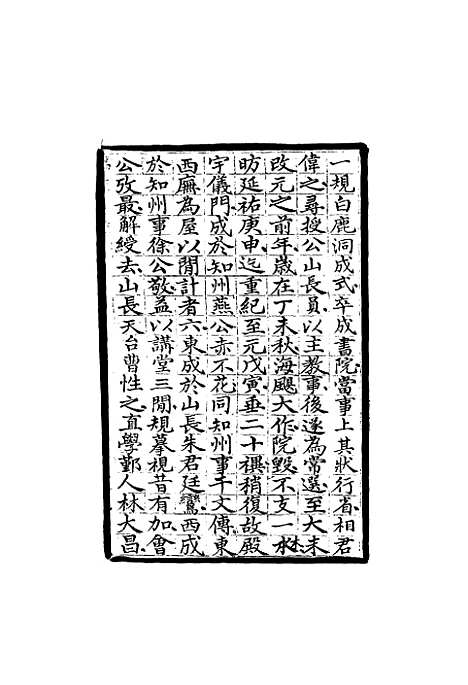 一規白鹿洞成式卒成書院當事上其狀行省相君
偉之尋授公山長員以主教事後遂為常選至大未
改元之前年歲在丁未秋海颶大作院毀不支一木
昉延祐庚申迄重紀至元戊寅垂二十禩稍復故殿
宇儀門成於知州燕公赤不花同知州事干文傳東
西廡為屋以間計者六東成於山長朱君廷鸞西成
於知州事徐公敬益以講堂三間規摹視昔有加會
公攷最解綬去山長天台曾性之直學鄞人林大昌